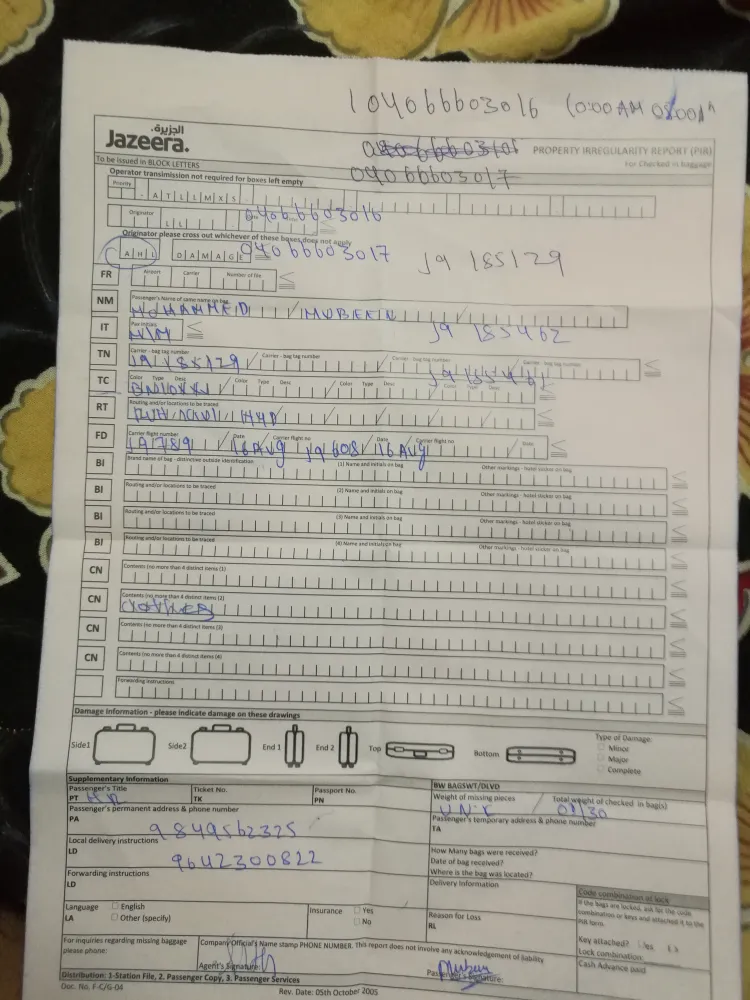 1 04066603016 (0:00 AM 08:00
الجزيرة.
Jazeera.
PROPERTY IRREGULARITY REPORT (PIR)
To be issued in BLOCK LETTERS
For Checked in baggage
04066603017
Operator transimission not required for boxes left empty
Priority
ATLLMXS
Originator
LL
04066603016
Originator please cross out whichever of these boxes does not apply
AHL DAMAGE
04066603017
J9 185129
FR Airport Carrier Number of file
NM Passenger's Name of same name on bag
MOHAMMED / MUBEEN
IT Pax initials
J9 185462
TN Carrier - bag tag number Carrier - bag tag number Carrier - bag tag number Carrier - bag tag number
TC Color Type Desc Color Type Desc Color Type Desc Color Type Desc
RT Routing and/or locations to be traced
FD Carrier flight number Date Carrier flight no Date Carrier flight no Date
16 Aug J9 608 16 Aug
BI Brand name of bag - distinctive outside identification (1) Name and initials on bag Other markings - hotel sticker on bag
BI Routing and/or locations to be traced (2) Name and initials on bag Other markings - hotel sticker on bag
BI Routing and/or locations to be traced (3) Name and initials on bag Other markings - hotel sticker on bag
BI Routing and/or locations to be traced (4) Name and initials on bag Other markings - hotel sticker on bag
CN Contents (no more than 4 distinct items (1)
CN Contents (no more than 4 distinct items (2)
CLOTHES
CN Contents (no more than 4 distinct items (3)
CN Contents (no more than 4 distinct items (4)
Forwarding instructions
Damage Information - please indicate damage on these drawings
Side1 Side2 End 1 End 2 Top Bottom
Type of Damage:
Minor
Major
Complete
Supplementary Information
BW BAGSWT/DLVD
Passenger's Title Ticket No. Passport No.
PT TK PN
Weight of missing pieces / Total weight of checked in bag(s)
UNK 01/30
Passenger's permanent address & phone number
PA
9849562325
Passenger's temporary address & phone number
TA
Local delivery instructions
LD
9642300822
How Many bags were received?
Date of bag received?
Where is the bag was located?
Forwarding instructions
LD
Delivery Information
Code combination of lock
If the bags are locked, ask for the code combination or keys and attached it to the PIR form.
Language English
LA Other (specify)
Insurance Yes
No
Reason for Loss
RL
Key attached? Yes
Lock combination:
Cash Advance paid
For inquiries regarding missing baggage please phone:
Company Official's Name stamp PHONE NUMBER. This report does not involve any acknowledgement of liability
Agent's Signature:
Passenger's Signature:
Distribution: 1-Station File, 2. Passenger Copy, 3. Passenger Services
Doc. No. F-C/G-04
Rev. Date: 05th October 2005